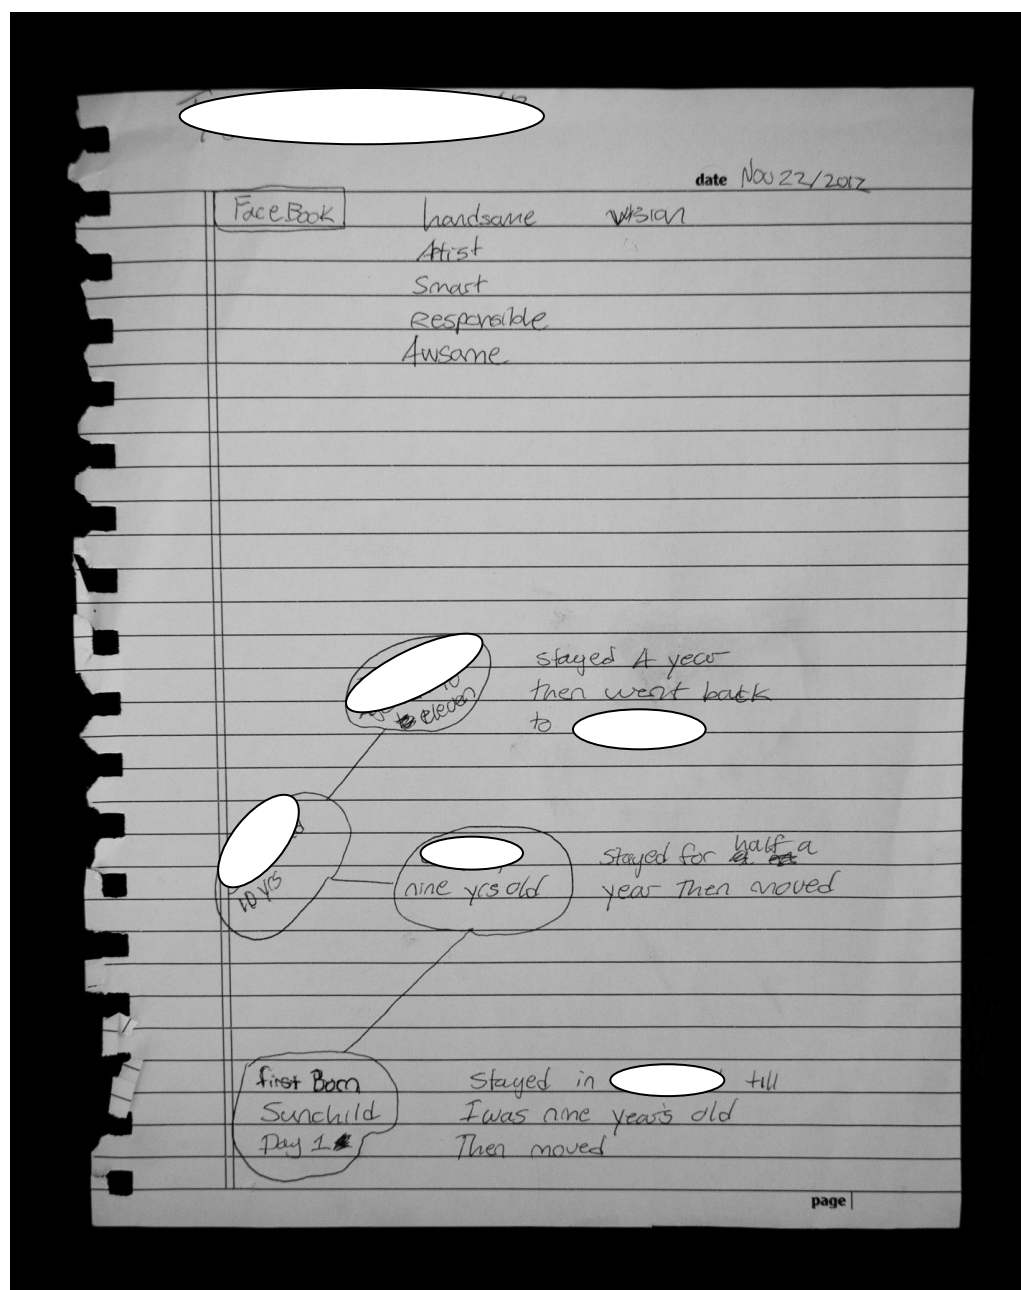 date Nov 22/2012
FaceBook handsame vision
Artist
Smart
Responsible
Awsame
stayed A year
then went back
to
to eleven
10 yrs
nine yrs old
stayed for half a
year Then moved
first Born
Sunchild
Day 1
Stayed in till
I was nine year's old
Then moved
page